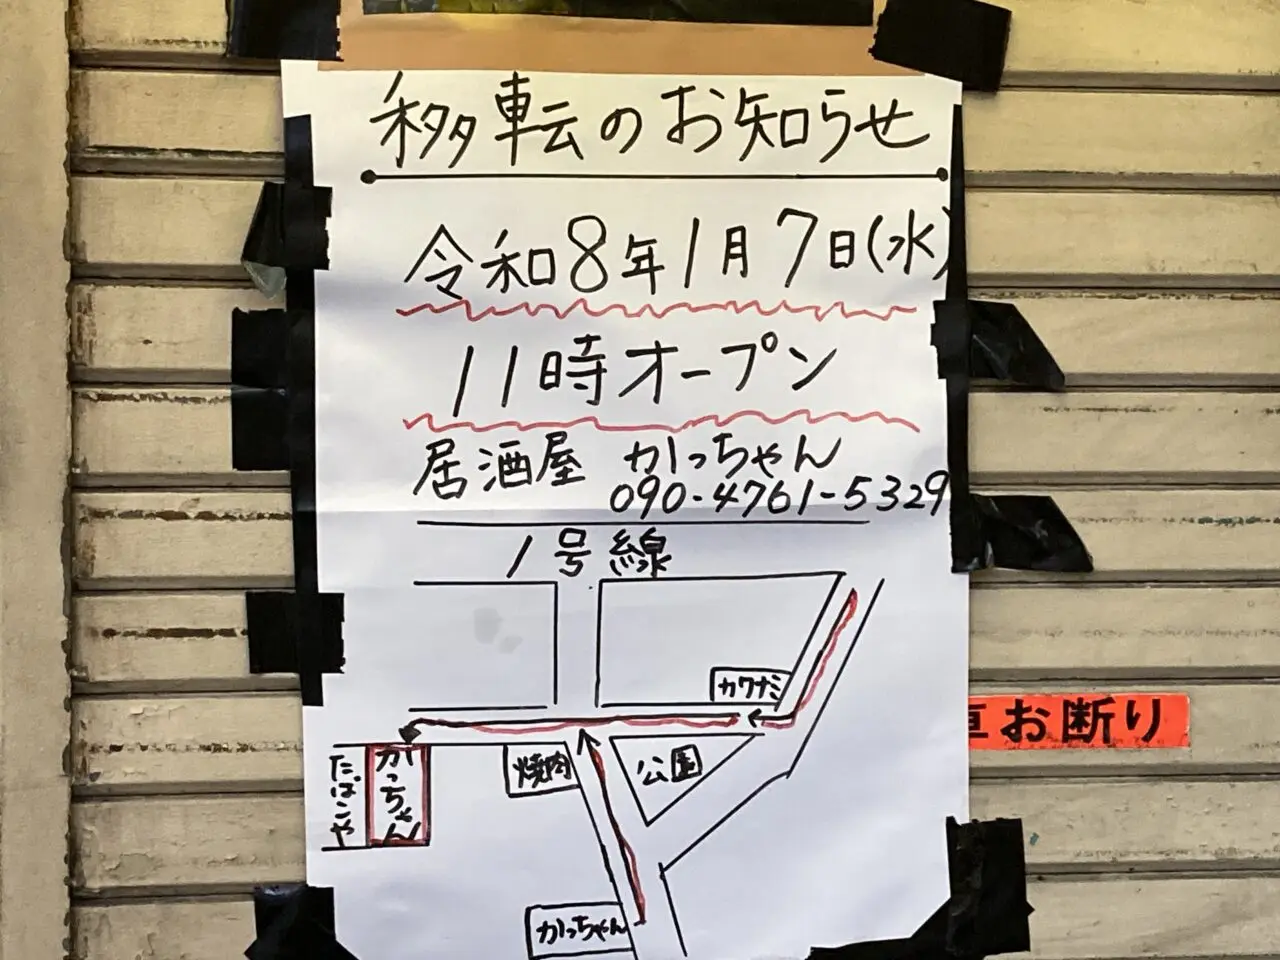 移転のお知らせ
令和8年1月7日(水)
11時オープン
居酒屋 かっちゃん
090-4761-5329
1号線
カワナミ
焼肉
公園
かっちゃん
たばこや
かっちゃん
車お断り